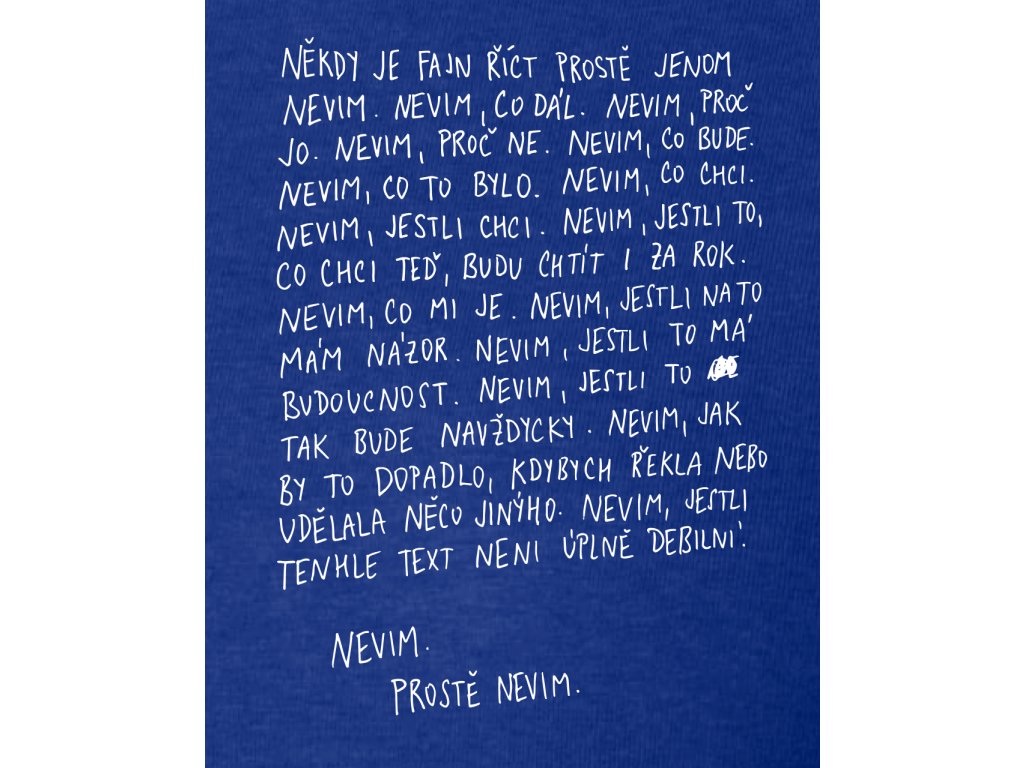 NĚKDY JE FAJN ŘÍCT PROSTĚ JENOM
NEVIM. NEVIM, CO DÁL. NEVIM, PROČ
JO. NEVIM, PROČ NE. NEVIM, CO BUDE.
NEVIM, CO TO BYLO. NEVIM, CO CHCI.
NEVIM, JESTLI CHCI. NEVIM, JESTLI TO,
CO CHCI TEĎ, BUDU CHTÍT I ZA ROK.
NEVIM, CO MI JE. NEVIM, JESTLI NA TO
MÁM NÁZOR. NEVIM, JESTLI TO MÁ
BUDOUCNOST. NEVIM, JESTLI TO
TAK BUDE NAVŽDYCKY. NEVIM, JAK
BY TO DOPADLO, KDYBYCH ŘEKLA NEBO
UDĚLALA NĚCO JINÝHO. NEVIM, JESTLI
TENHLE TEXT NENI ÚPLNĚ DEBILNÍ.
NEVIM.
PROSTĚ NEVIM.